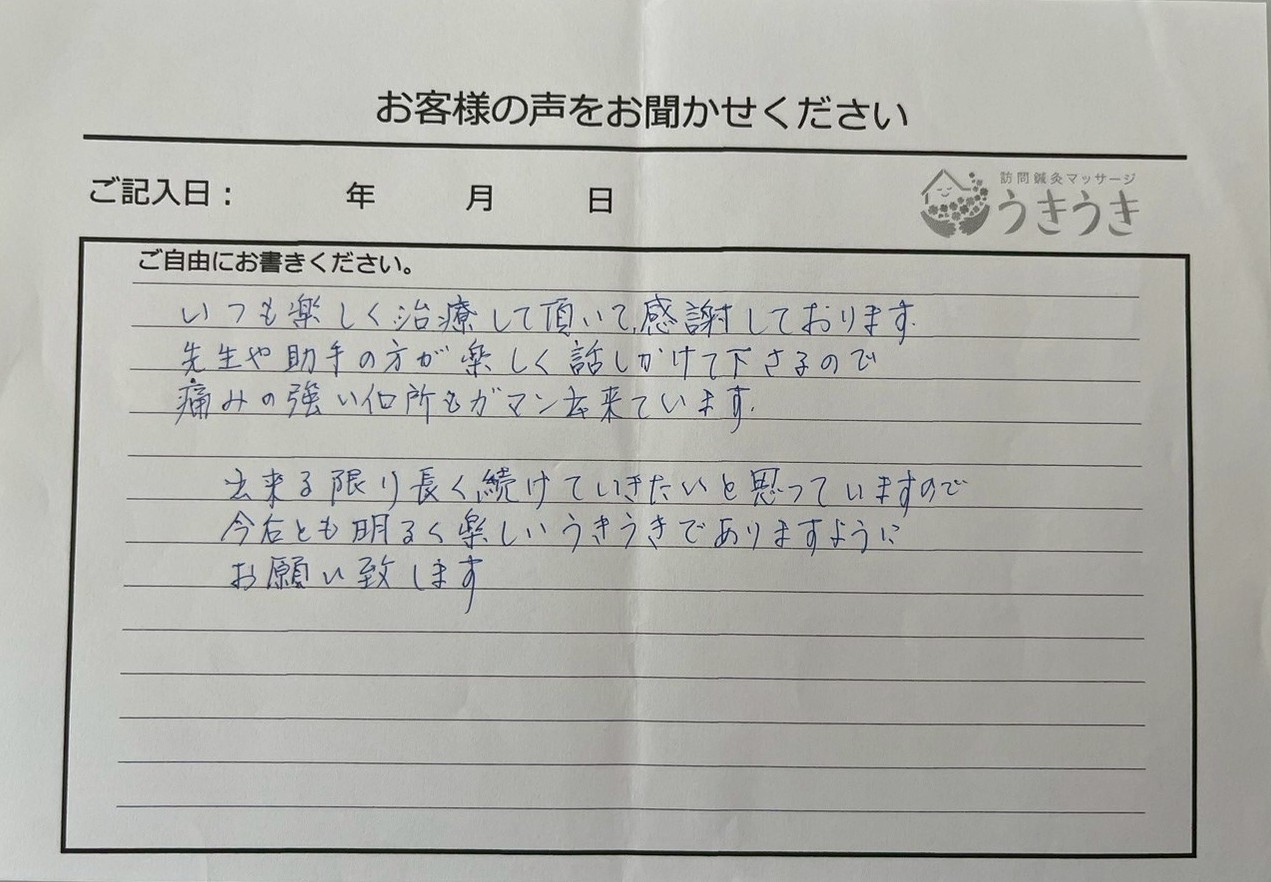 お客様の声をお聞かせください
ご記入日： 年 月 日
訪問鍼灸マッサージ
うきうき
ご自由にお書きください。
いつも楽しく治療して頂いて、感謝しております。
先生や助手の方が楽しく話しかけて下さるので
痛みの強い個所もガマン出来ています。
出来る限り長く続けていきたいと思っていますので
今后とも明るく楽しいうきうきでありますように
お願い致します